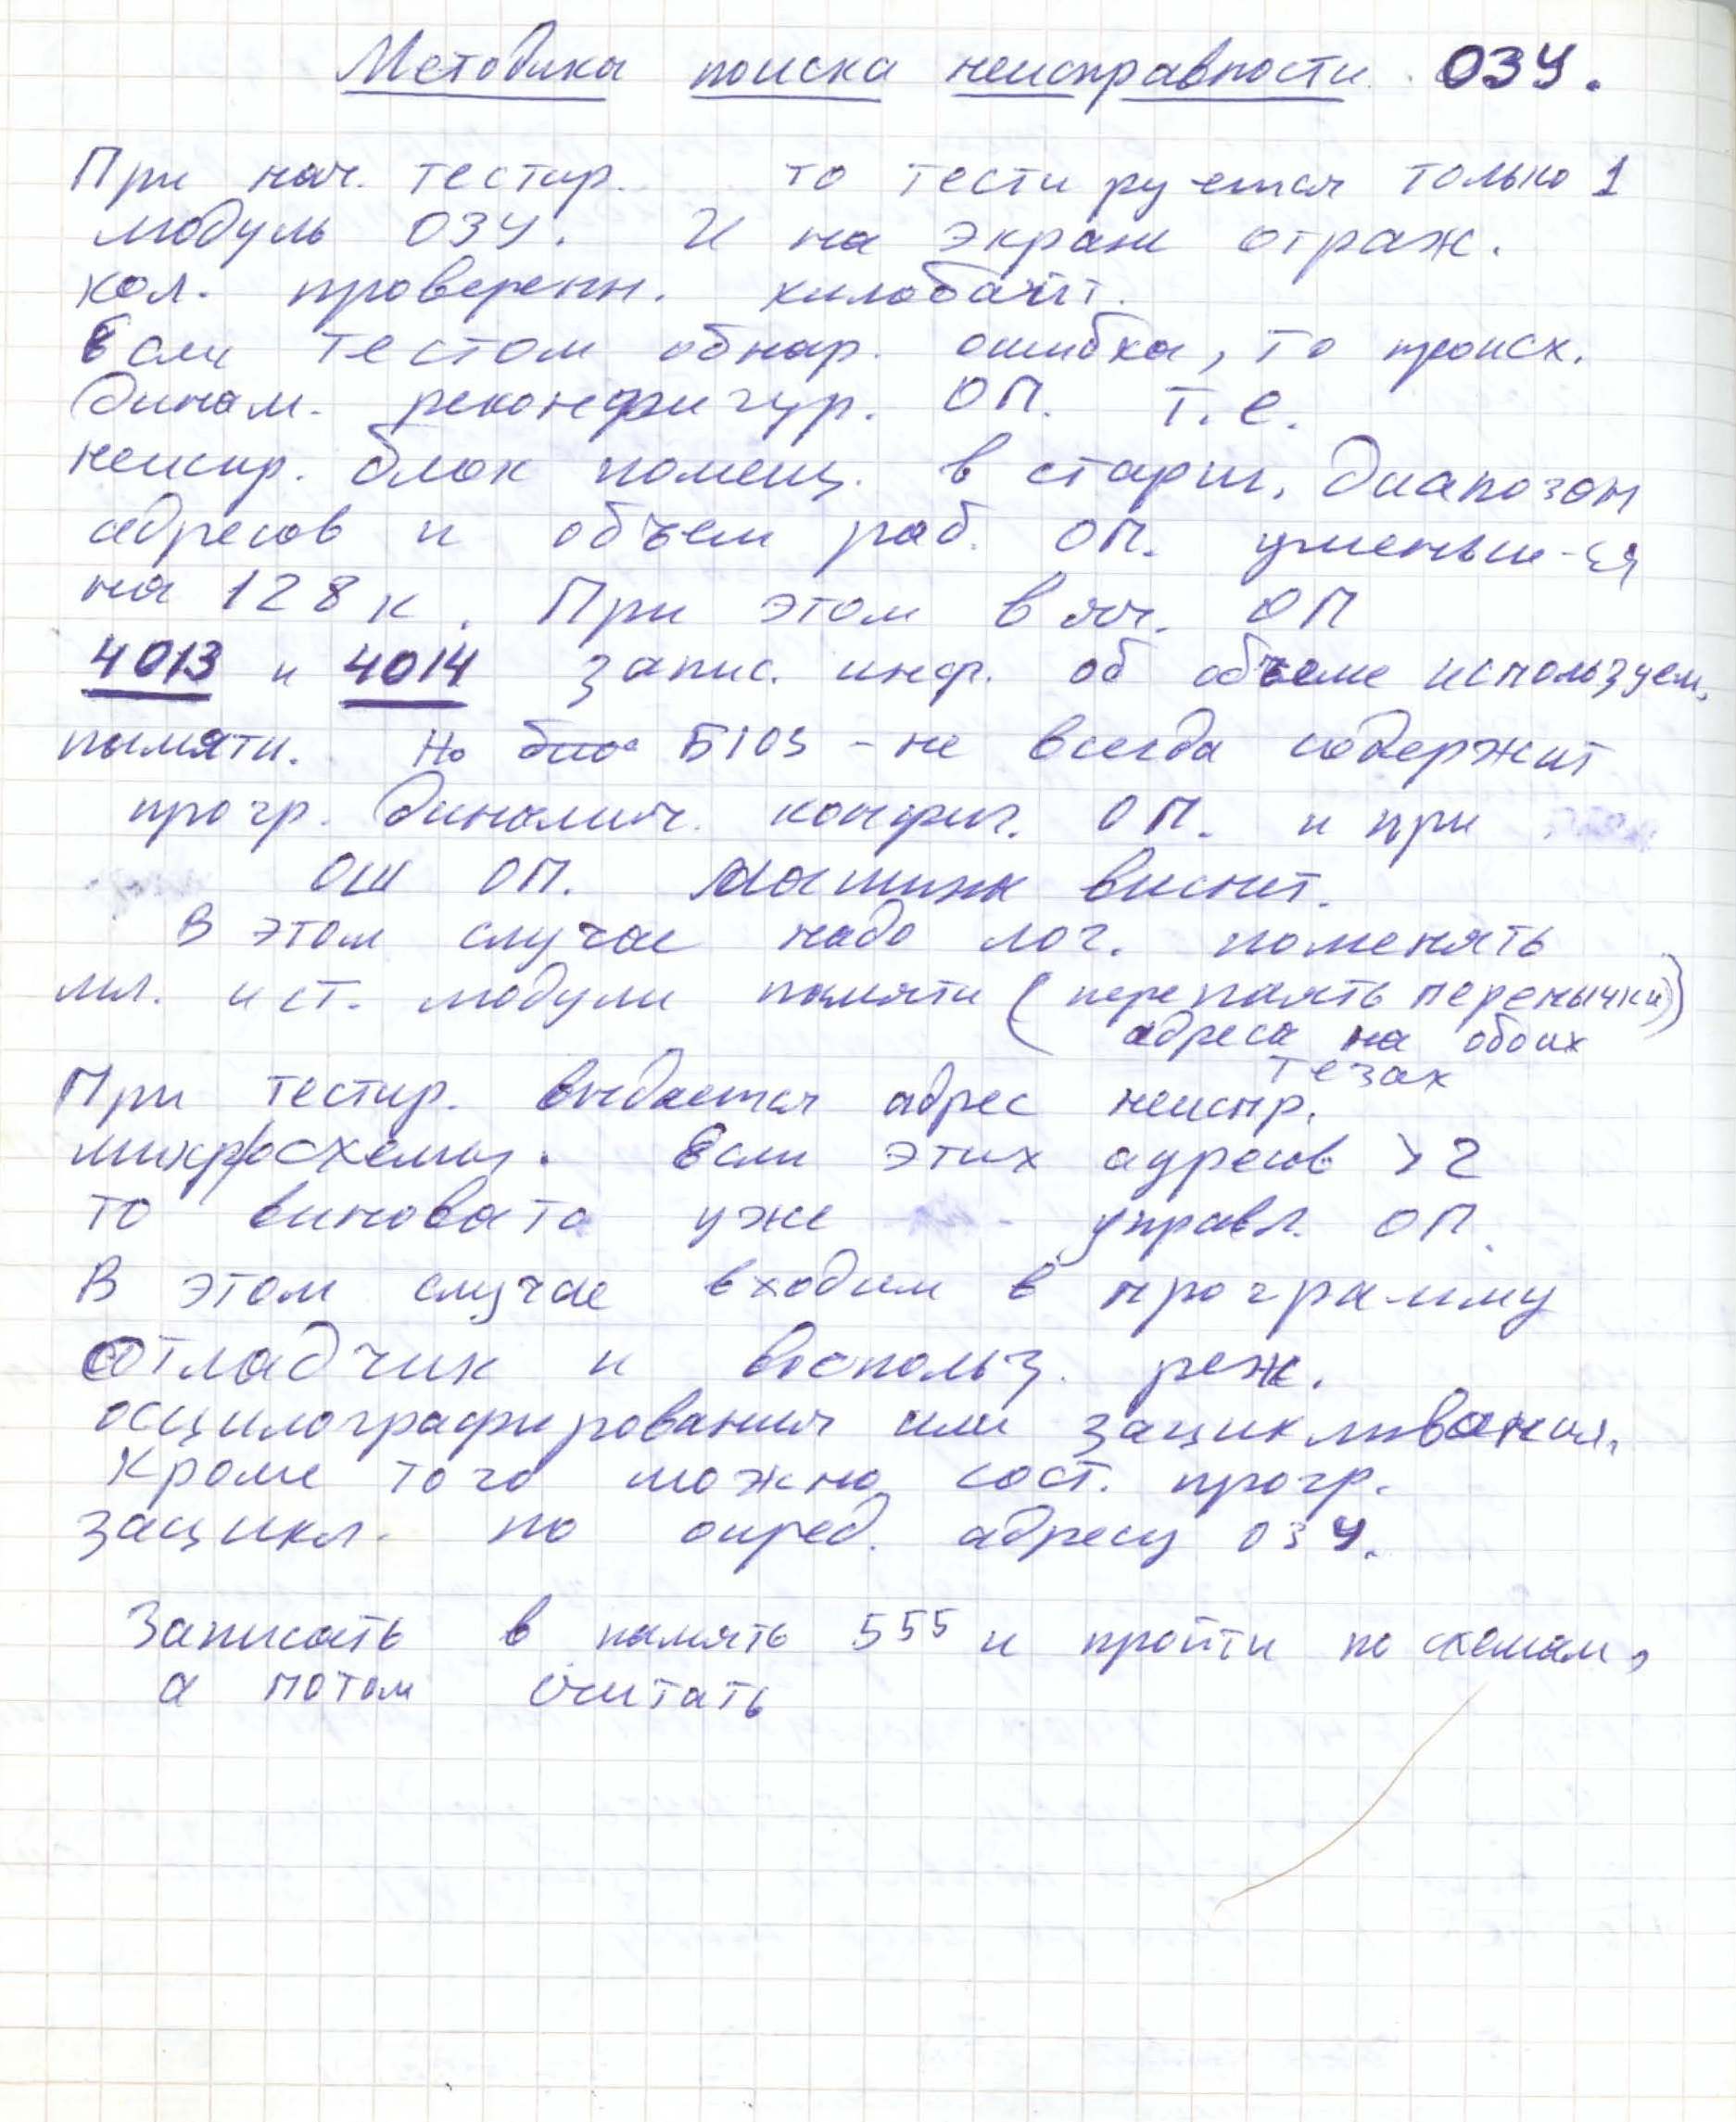 Методика поиска неисправности ОЗУ.
При нач. тестир. то тестируется только 1
модуль ОЗУ. И на экран отраж.
кол. проверенн. килобайт.
Если тестом обнар. ошибка, то происх.
динам. реконфигур. ОП. Т.е.
неиспр. блок помещ. в старш. диапозон
адресов и объем раб. ОП. уменьш-ся
на 128 к. При этом в яч. ОП
4013 и 4014 запис. инф. об объеме используем.
памяти. Но био БIOS - не всегда содержит
прогр. динамич. конфиг. ОП. и при
ОШ ОП. машина виснит.
В этом случае надо лог. поменять
мл. и ст. модули памяти (перепаять перемычки)
адреса на обоих
тезах
При тестир. выдается адрес неиспр.
микросхемы. Если этих адресов >2
то виновато уже управл. ОП.
В этом случае входим в программу
отладчик и воспольз. реж.
осцилографирования или зацикливания.
Кроме того можно сост. прогр.
зацикл. по опред. адресу ОЗУ.
Записать в память 555 и пройти по схемам,
а потом считать